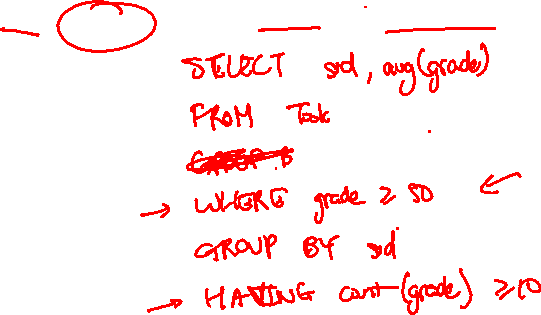 SELECT sid, avg(grade)
FROM Took
WHERE grade ≥ 50
GROUP BY sid
HAVING count(grade) ≥ 10